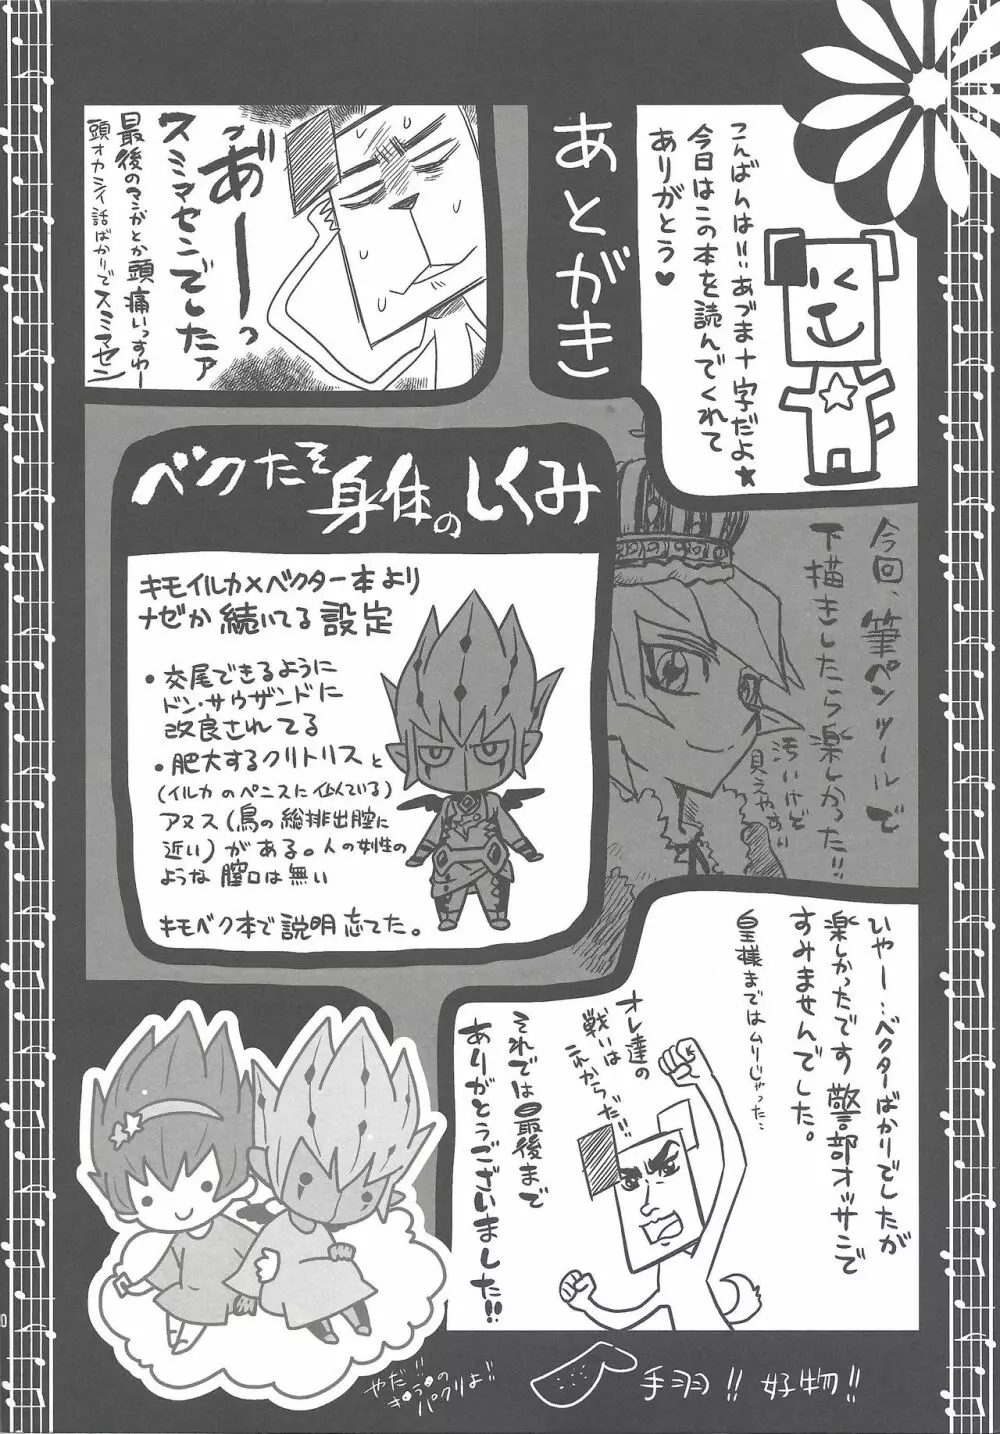 あとがき
こんばんは!!あづま十字だよ★
今日はこの本を読んでくれて
ありがとう♥
あ゛ーーっ
スミマセンでしたァ
最後のマンガとか頭痛いっすわー
頭オカシイ話ばかりでスミマセン
今回、筆ペンツールで
下描きしたら楽しかった!!
汚いけど
見えやすい
ベクたそ
身体のしくみ
キモイルカ×ベクター本より
ナゼか続いてる設定
・交尾できるように
ドン・サウザンドに
改良されてる
・肥大するクリトリスと
(イルカのペニスに似ている)
アヌス(鳥の総排出腔に
近い)がある。人の女性の
ような膣口は無い
キモベク本で説明忘れてた。
いやー…ベクターばかりでしたが
楽しかったです警部オッサンで
すみませんでした。
皇様まではムリじゃった…
オレ達の
戦いは
これからだ!!
それでは最後まで
ありがとうございました!!
やだ!!
パクリよ!!
手羽!! 好物!!